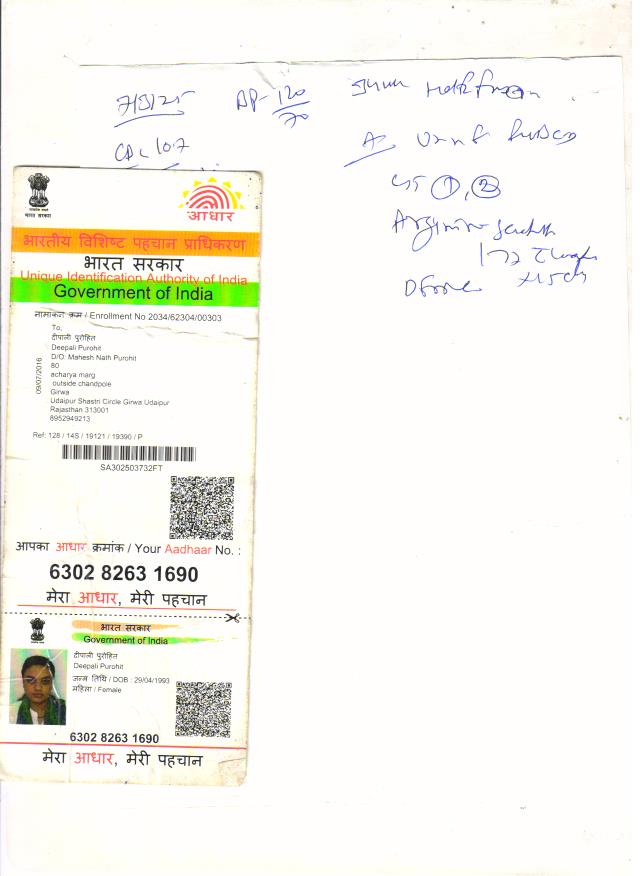 BP- 120
70
①, ②
भारत सरकार
आधार
भारतीय विशिष्ट पहचान प्राधिकरण
भारत सरकार
Unique Identification Authority of India
Government of India
नामांकन क्रम / Enrollment No 2034/62304/00303
To,
दीपाली पुरोहित
Deepali Purohit
D/O: Mahesh Nath Purohit
80
acharya marg
outside chandpole
Girwa
Udaipur Shastri Circle Girwa Udaipur
Rajasthan 313001
8952949213
09/07/2016
Ref: 128 / 14S / 19121 / 19390 / P
SA302503732FT
आपका आधार क्रमांक / Your Aadhaar No. :
6302 8263 1690
मेरा आधार, मेरी पहचान
भारत सरकार
Government of India
दीपाली पुरोहित
Deepali Purohit
जन्म तिथि / DOB : 29/04/1993
महिला / Female
6302 8263 1690
मेरा आधार, मेरी पहचान